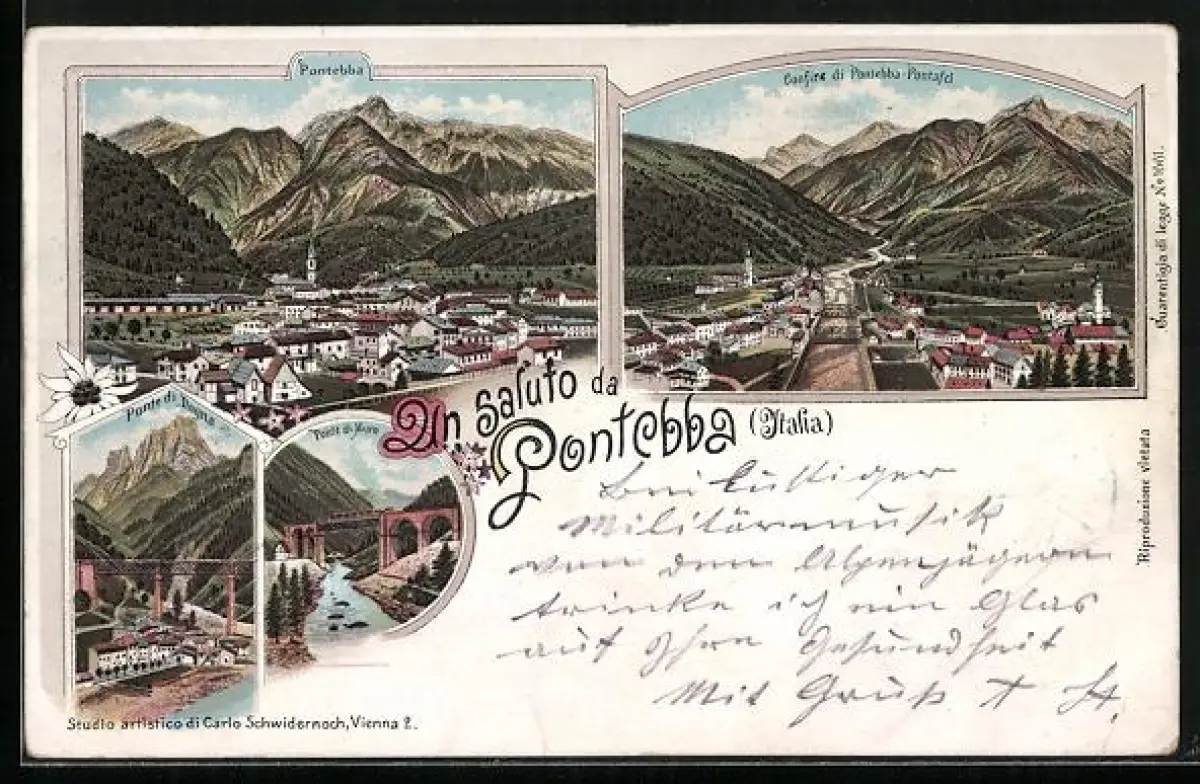 Pontebba
Confine di Pontebba-Pontafel
Ponte di Dogna
Ponte di Muro
Un Saluto da
Pontebba (Italia)
Bei lustiger
Militärmusik
von den Alpenjägern
trinke ich ein Glas
auf Ihre Gesundheit
Mit Gruß
Studio artistico di Carlo Schwidernoch, Vienna 2.
Guarentigia di legge No
Riproduzione vietata